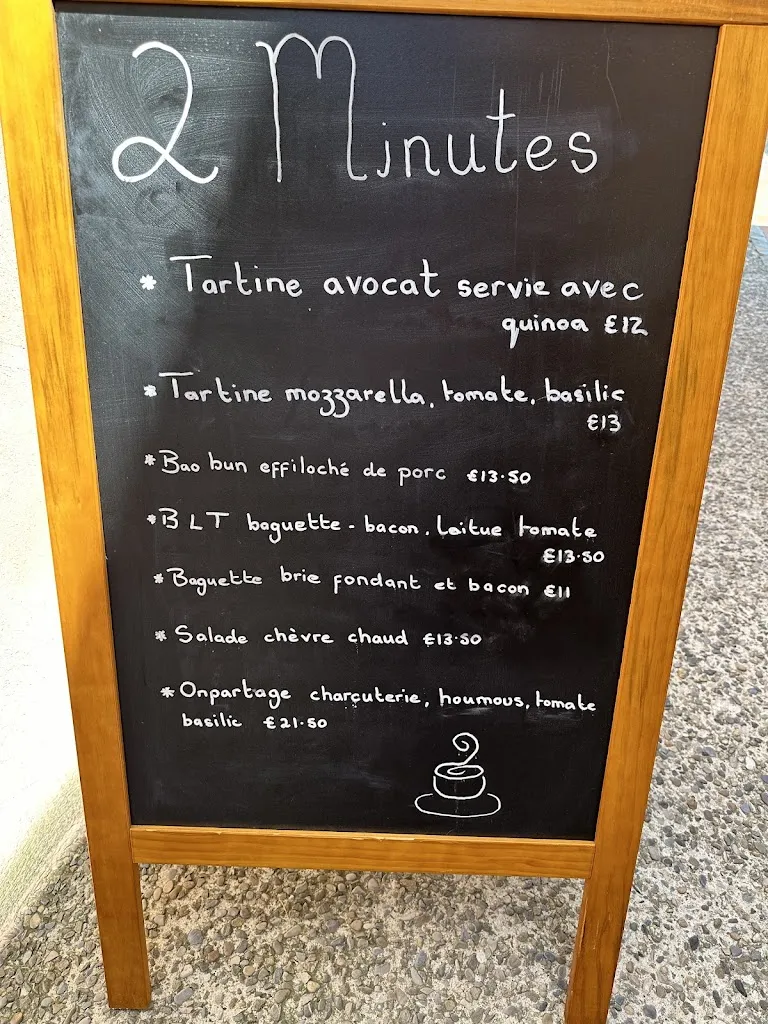 2 Minutes
* Tartine avocat servie avec
quinoa €12
* Tartine mozzarella, tomate, basilic
€13
* Bao bun effiloché de porc €13.50
* BLT baguette - bacon, laitue tomate
€13.50
* Baguette brie fondant et bacon €11
* Salade chèvre chaud €13.50
* Onpartage charcuterie, houmous, tomate
basilic €21.50